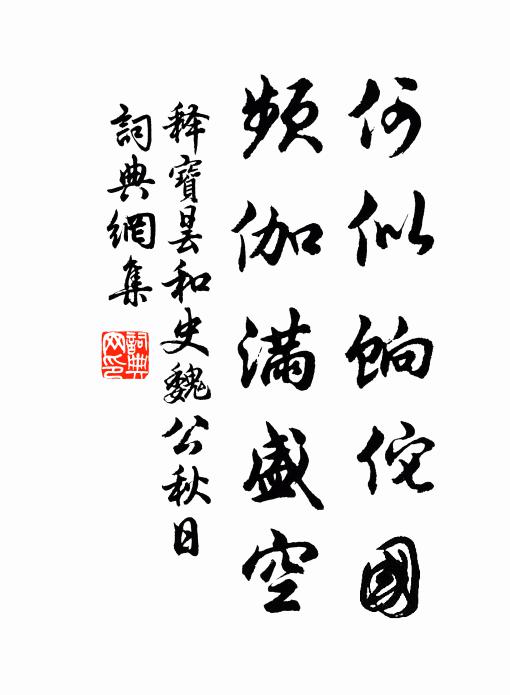 何似餉佗國
頻伽滿盛空
释寶曇和史魏公秋日
詞典網集
詞典網印